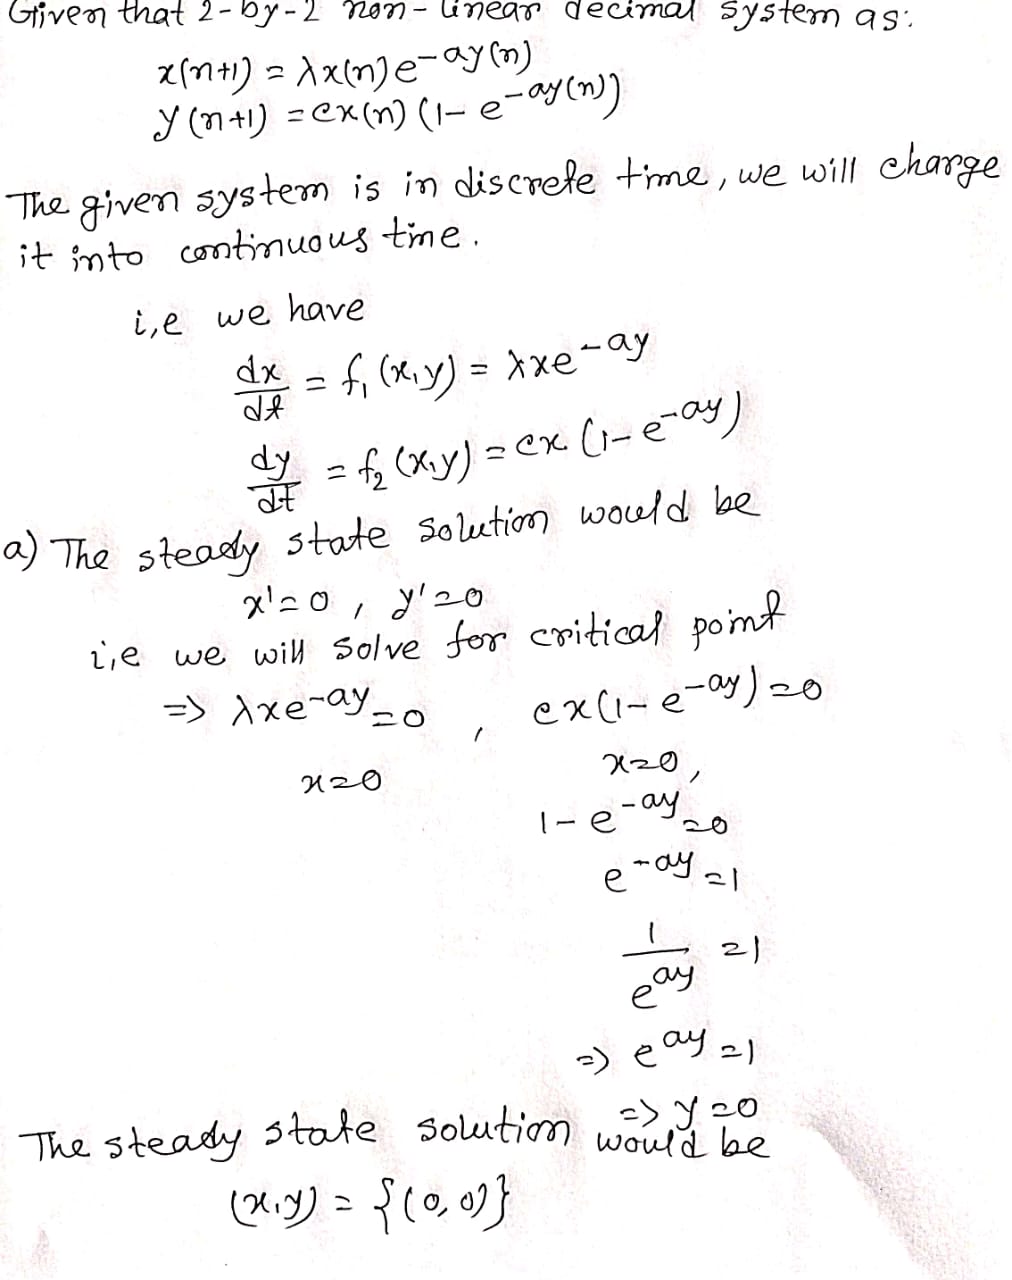 Given that 2-by-2 non-linear decimal system as:
x(n+1) = λx(n)e^-ay(n)
y(n+1) = cx(n) (1-e^-ay(n))
The given system is in discrete time, we will change
it into continuous time.
i,e we have
dx/dt = f₁(x,y) = λxe^-ay
dy/dt = f₂(x,y) = cx(1-e^-ay)
a) The steady state solution would be
x'=0, y'=0
i,e we will solve for critical point
=> λxe^-ay=0, cx(1-e^-ay)=0
x=0 x=0,
1-e^-ay=0
e^-ay=1
1/e^ay=1
=> e^ay=1
=> y=0
The steady state solution would be
(x,y) = {(0,0)}